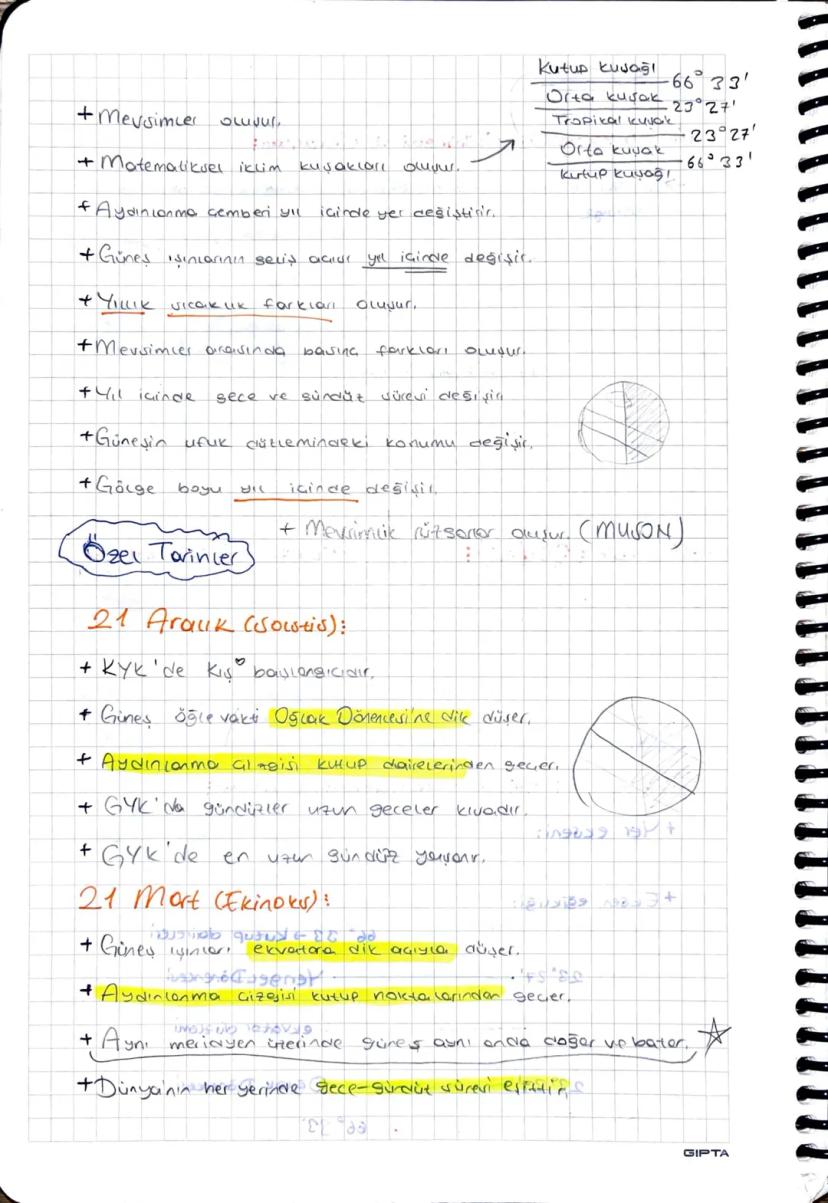 Kutup kuşağı
66° 33'
Orta kuşak
23° 27'
Tropikal kuşak
23° 27'
Orta kuşak
66° 33'
Kutup kuşağı
+ Mevsimler oluşur.
+ Matematiksel iklim kuşakları oluşur.
+ Aydınlanma çemberi yıl içinde yer değiştirir.
+ Güneş ışınlarının geliş açısı yıl içinde değişir.
+ Yıllık sıcaklık farkları oluşur.
+ Mevsimler arasında basınç farkları oluşur.
+ Yıl içinde gece ve gündüz süresi değişir.
+ Güneşin ufuk düzlemindeki konumu değişir.
+ Gölge boyu yıl içinde değişir.
+ Mevsimlik rüzgarlar oluşur. (MUSON)
Özel Tarihler
21 Aralık (Solstis):
+ KYK'de Kış başlangıcıdır.
+ Güneş öğle vakti Oğlak Dönencesi'ne dik düşer.
+ Aydınlanma çizgisi kutup dairelerinden geçer.
+ GYK'da gündüzler uzun geceler kısadır.
+ GYK'de en uzun gündüz yaşanır.
21 Mart (Ekinoks):
+ Güneş ışınları ekvatora dik açıyla düşer.
+ Aydınlanma çizgisi kutup noktalarından geçer.
+ Aynı meridyen üzerinde güneş aynı anda doğar ve batar.
+ Dünya'nın her yerinde gece-gündüz süresi eşittir.
GIPTA